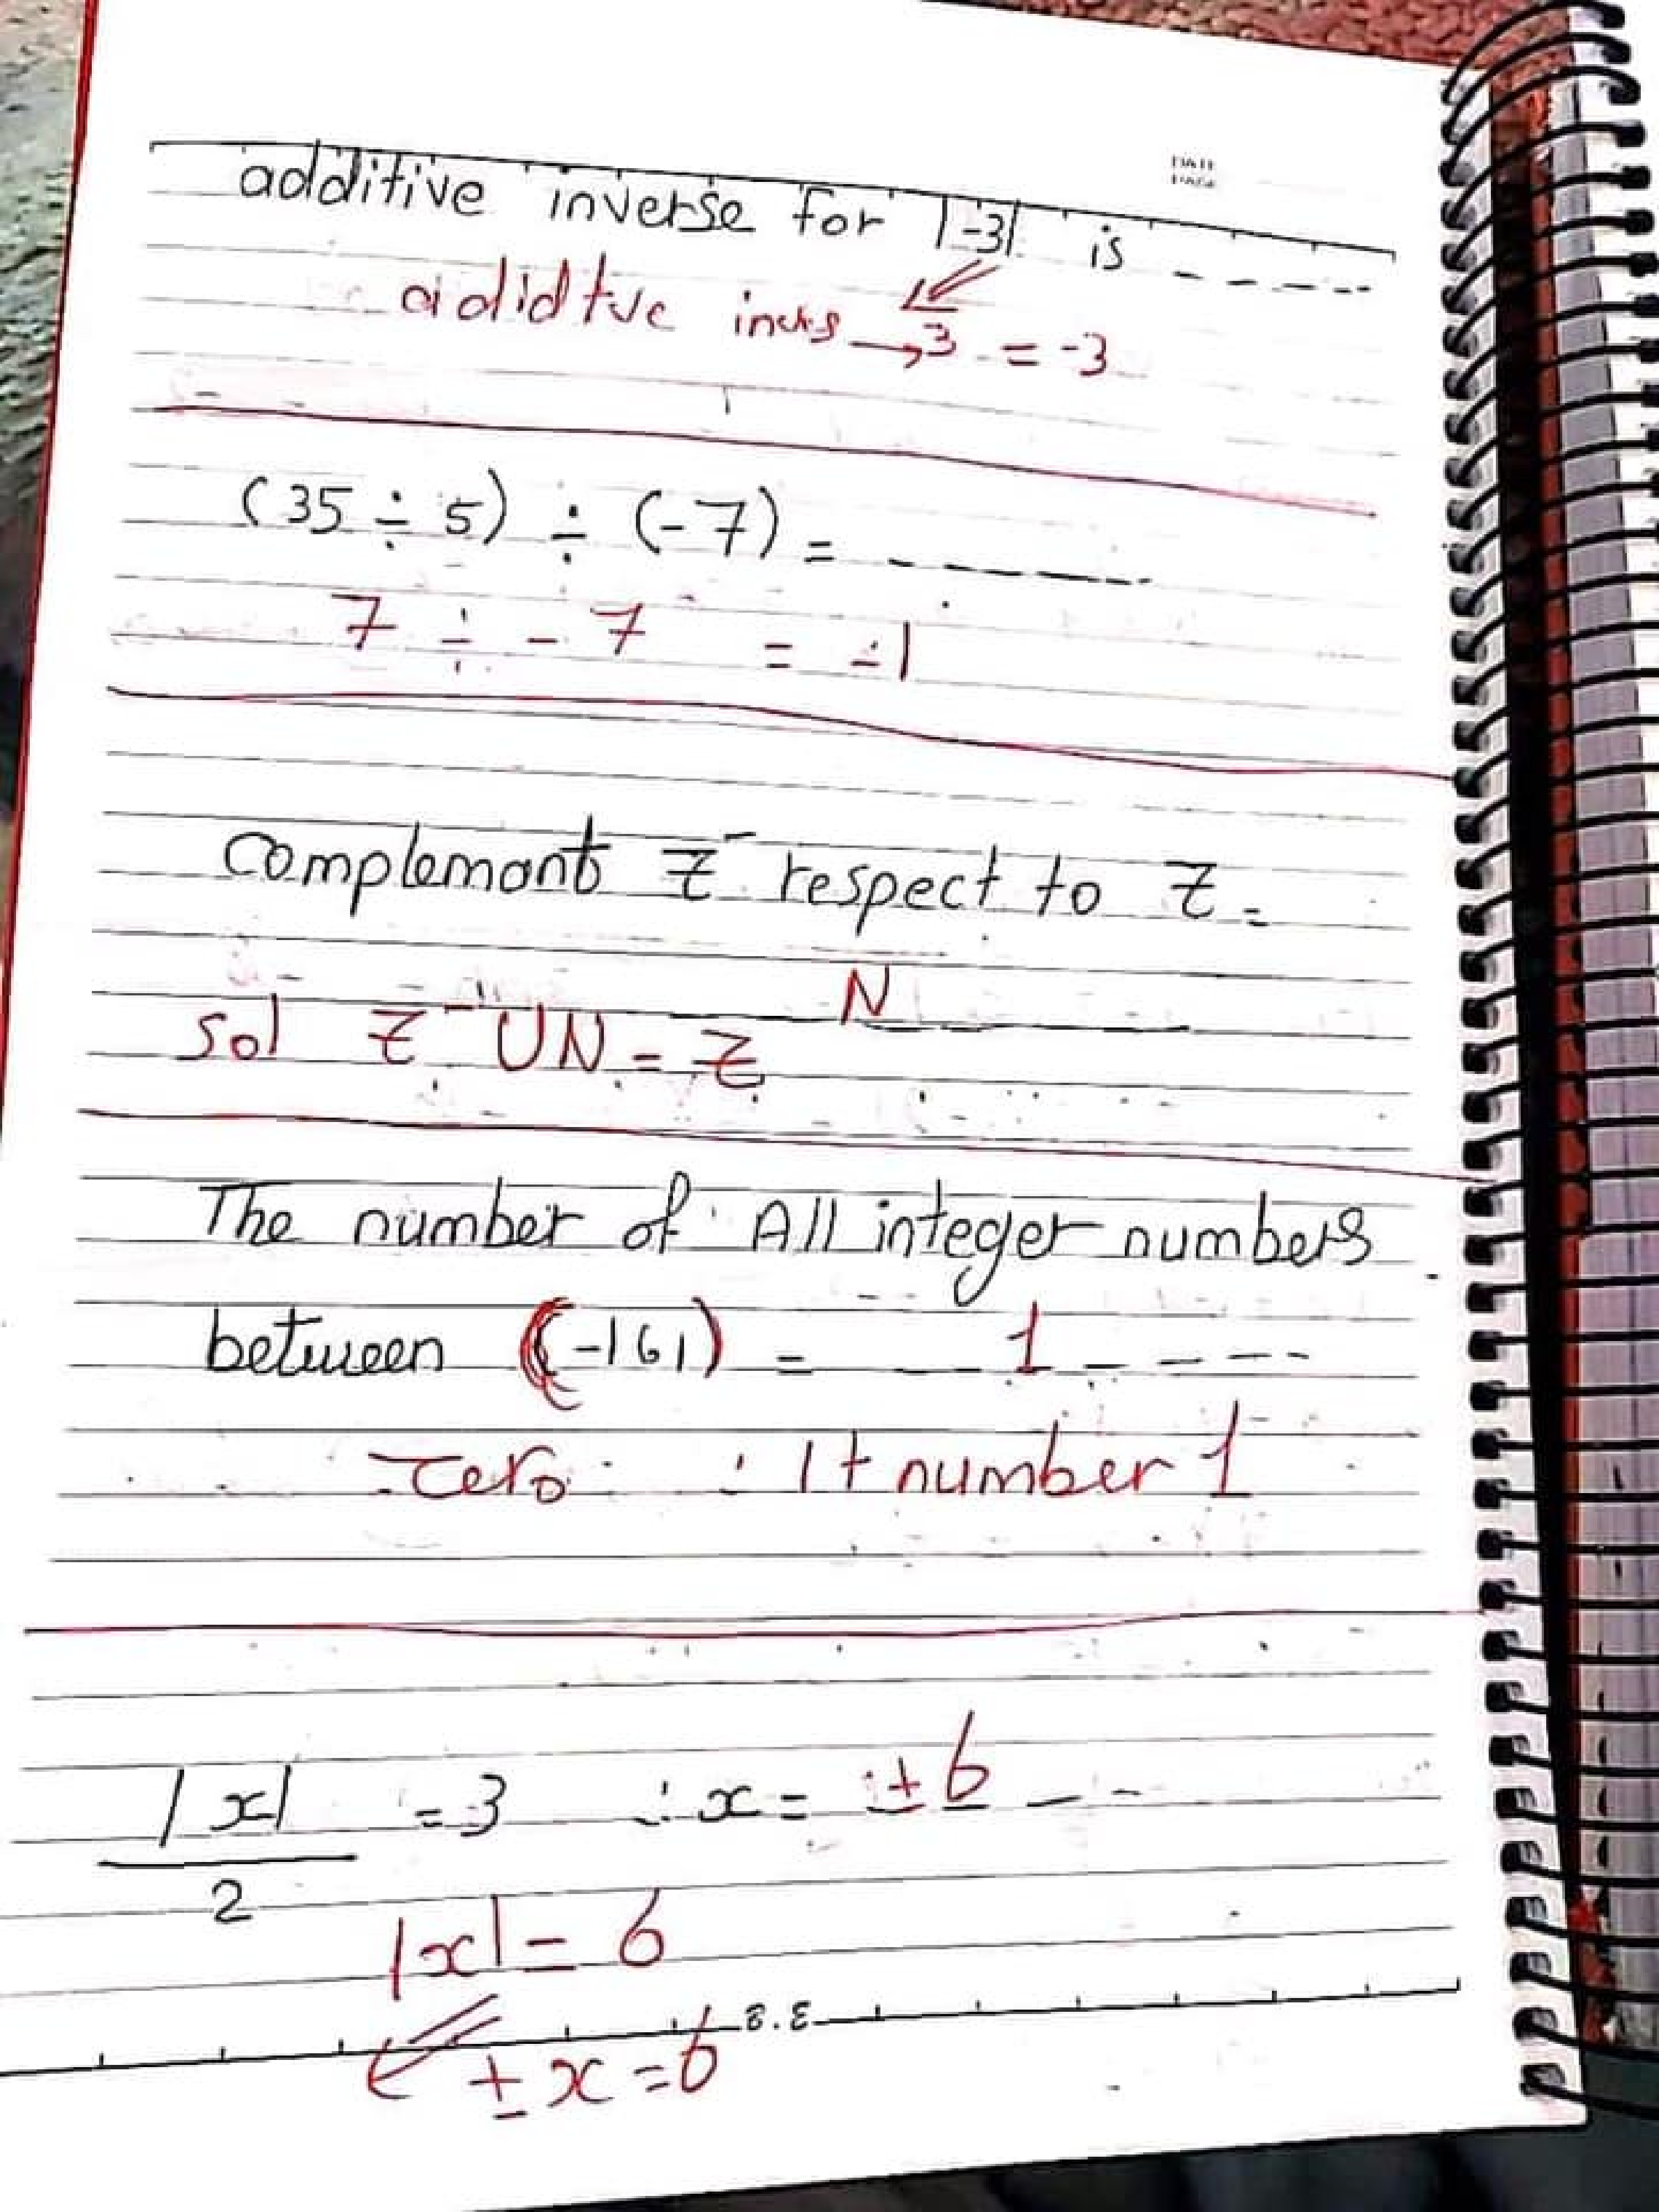 DATE
PAGE
additive inverse for |-3| is -----
adidtve invers → 3 = -3
(35 ÷ 5) ÷ (-7) = ------
7 ÷ - 7 = -1
Complemant Z⁻ respect to Z =
N
Sol Z⁻ U N = Z
The number of All integer numbers
between (-1 6 1) = -- 1 ----
zero : 1+ number 1
|x| = 3 ∴ x = ± 6 ---
2
|x| = 6
± x = 6